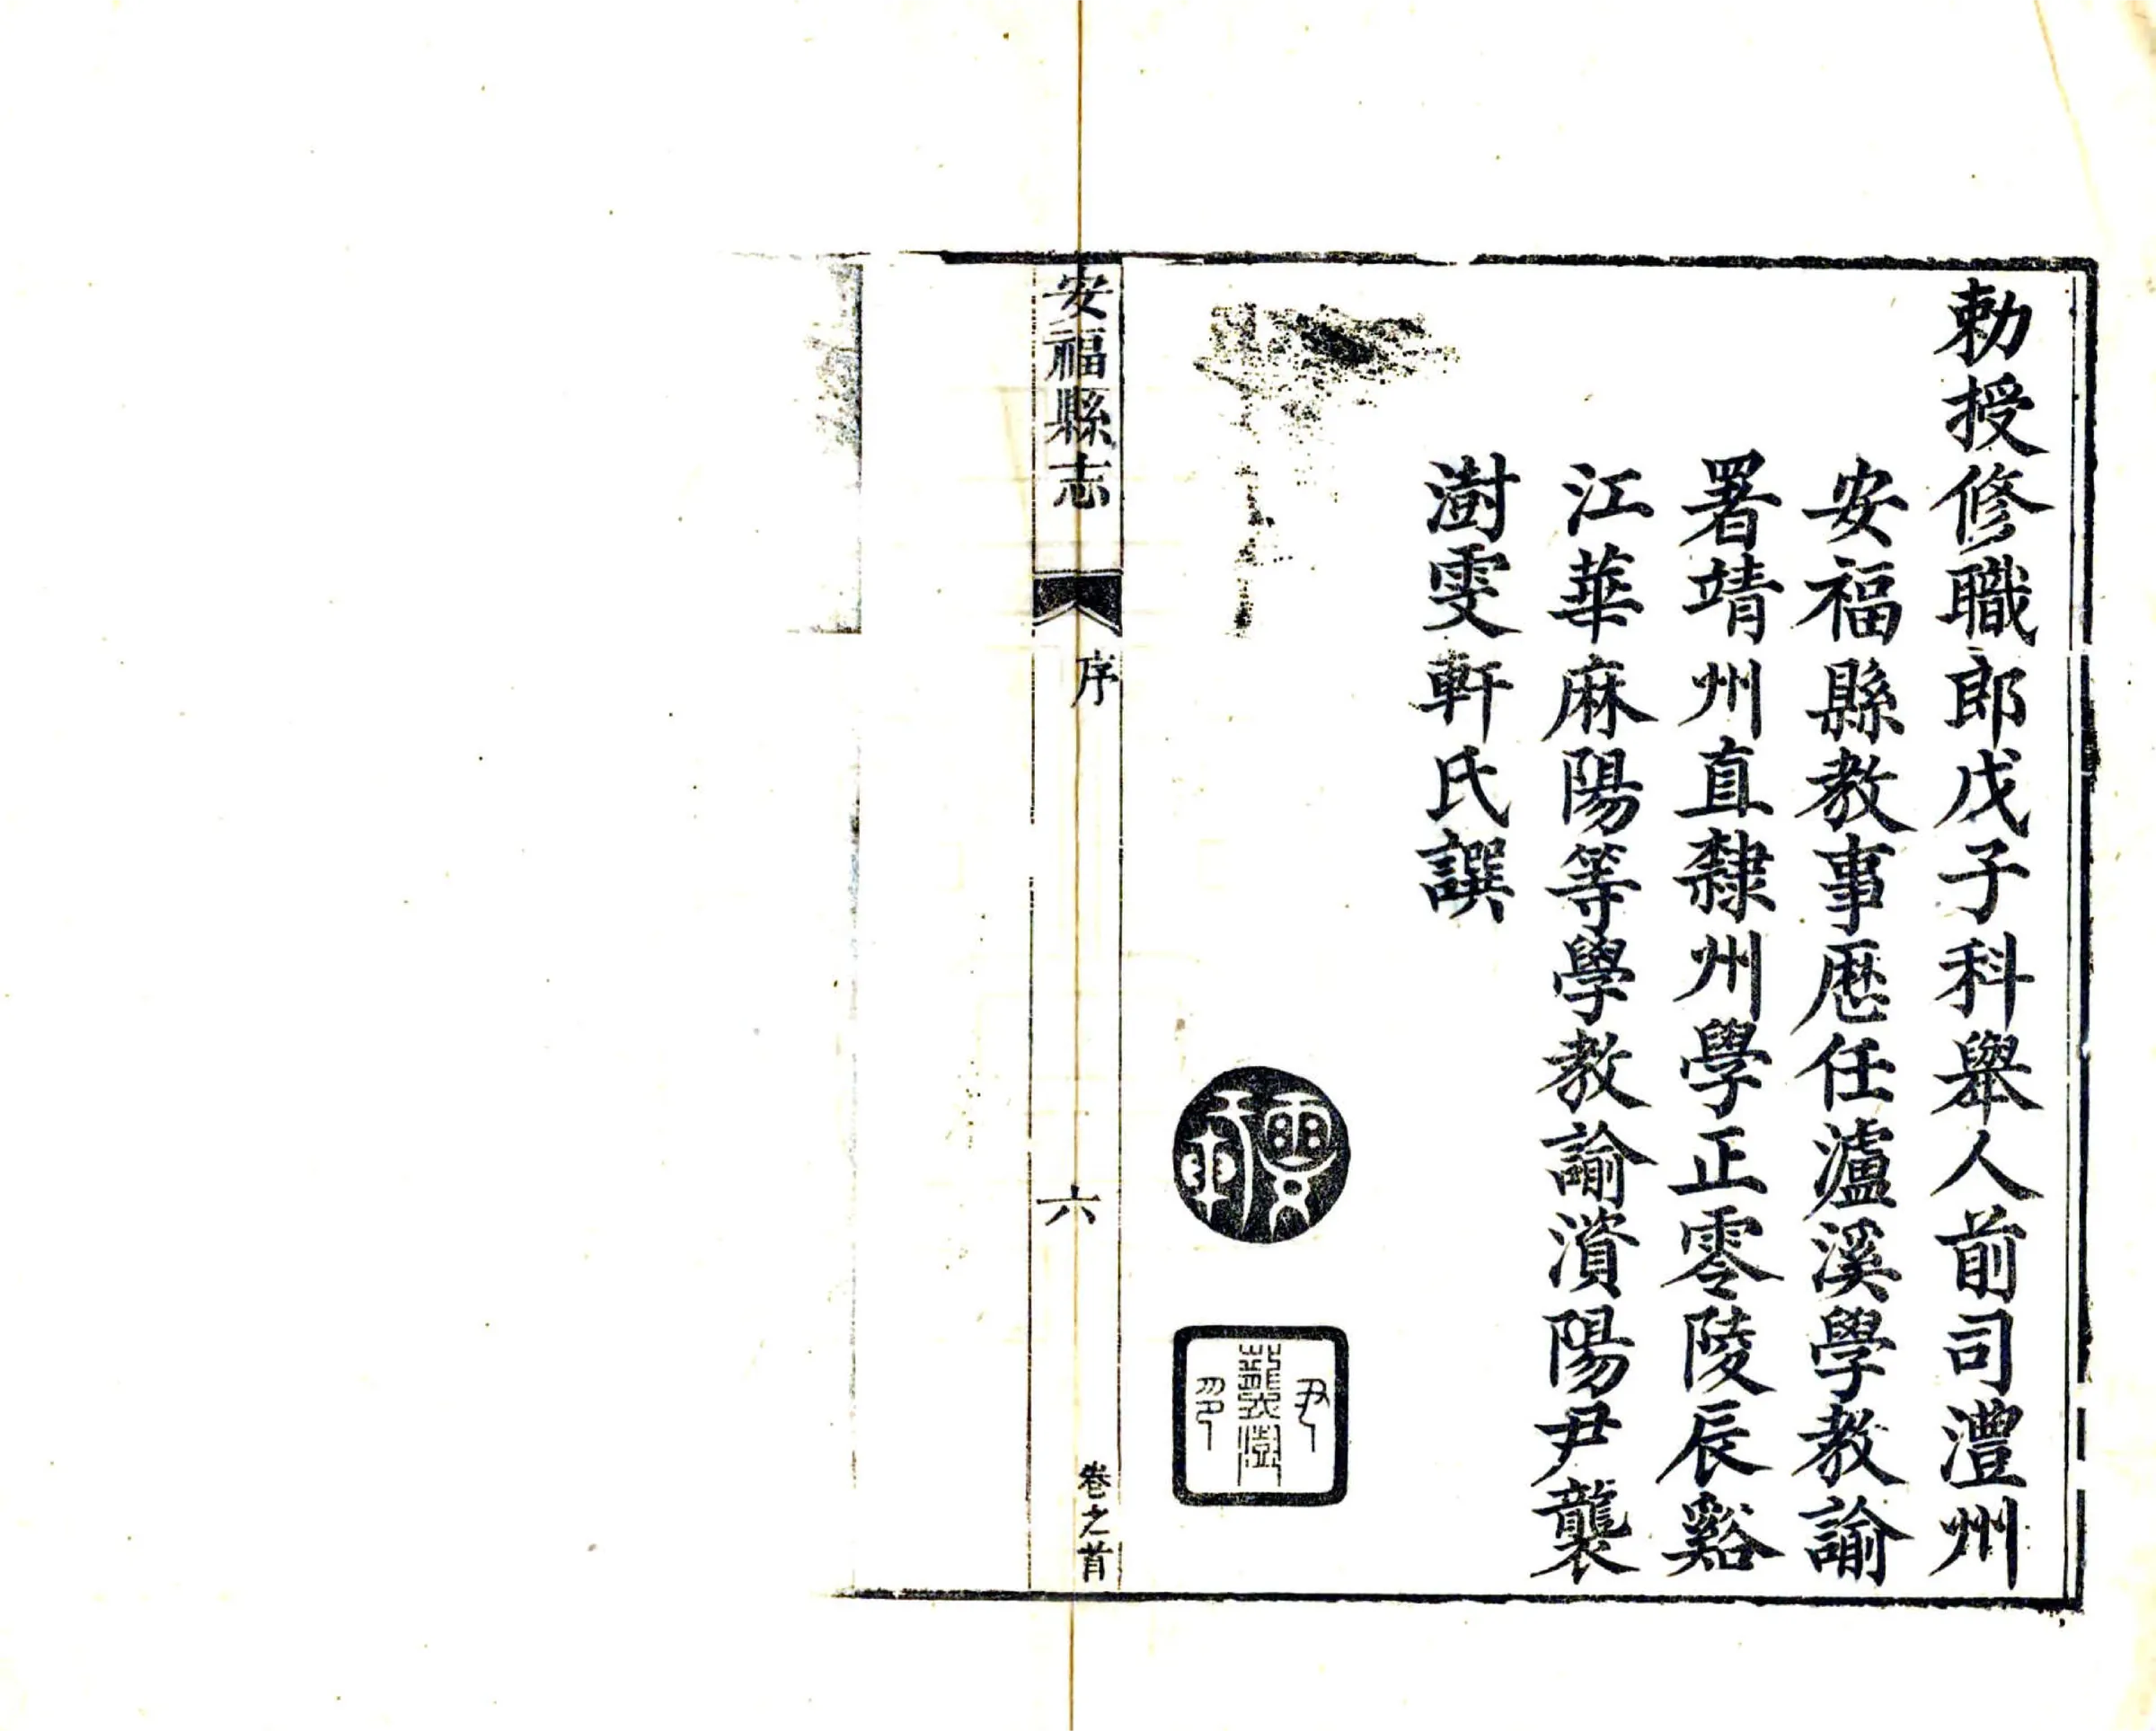 勅授修職郎戊子科舉人前司澧州
安福縣教事歴任瀘溪學教諭
署靖州直隸州學正零陵辰谿
江華麻陽等學教諭濱陽尹襲
澍雯軒氏譔
雯軒
尹襲澍印
安福縣志
序
六
卷之首